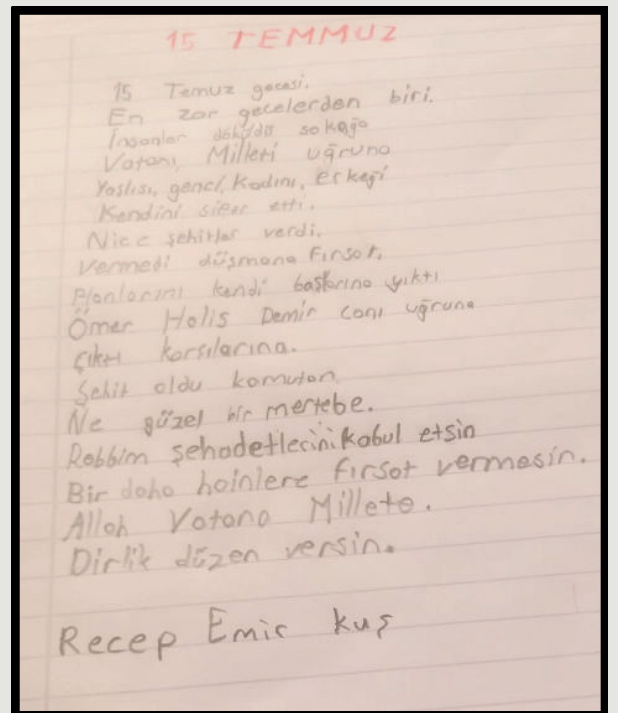 15 TEMMUZ
15 Temuz gecesi.
En zor gecelerden biri.
İnsanlar döküldü sokağa
Vatanı, Milleti uğruna
Yaslısı, genci, Kadını, erkeği
Kendini siper etti.
Nice şehitler verdi.
Vermedi düşmana Fırsat.
Planlarını kendi başlarına yıktı
Ömer Halis Demir canı uğruna
Çıktı karsılarına.
Şehit oldu komutan.
Ne güzel bir mertebe.
Rabbim şehadetlerini kabul etsin
Bir daha hainlere fırsat vermesin.
Allah Vatana Millete.
Dirlik düzen versin.
Recep Emir kuş